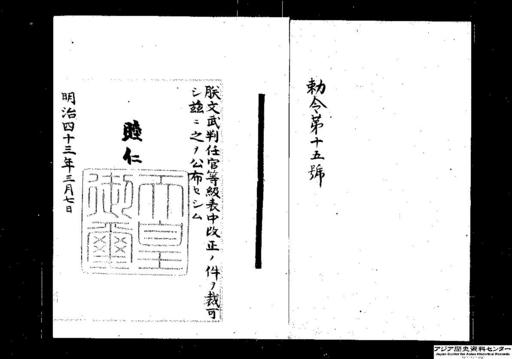 勅令第十五號
朕文武判任官等級表中改正ノ件ヲ裁可
シ茲ニ之ヲ公布セシム
睦仁
天皇御璽
明治四十三年三月七日
アジア歴史資料センター
Japan Center for Asian Historical Records